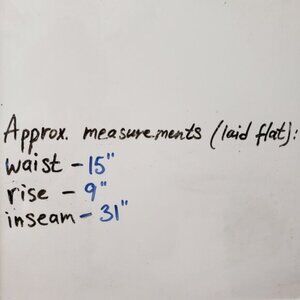 Approx. measurements (laid flat):
waist - 15"
rise - 9"
inseam - 31"